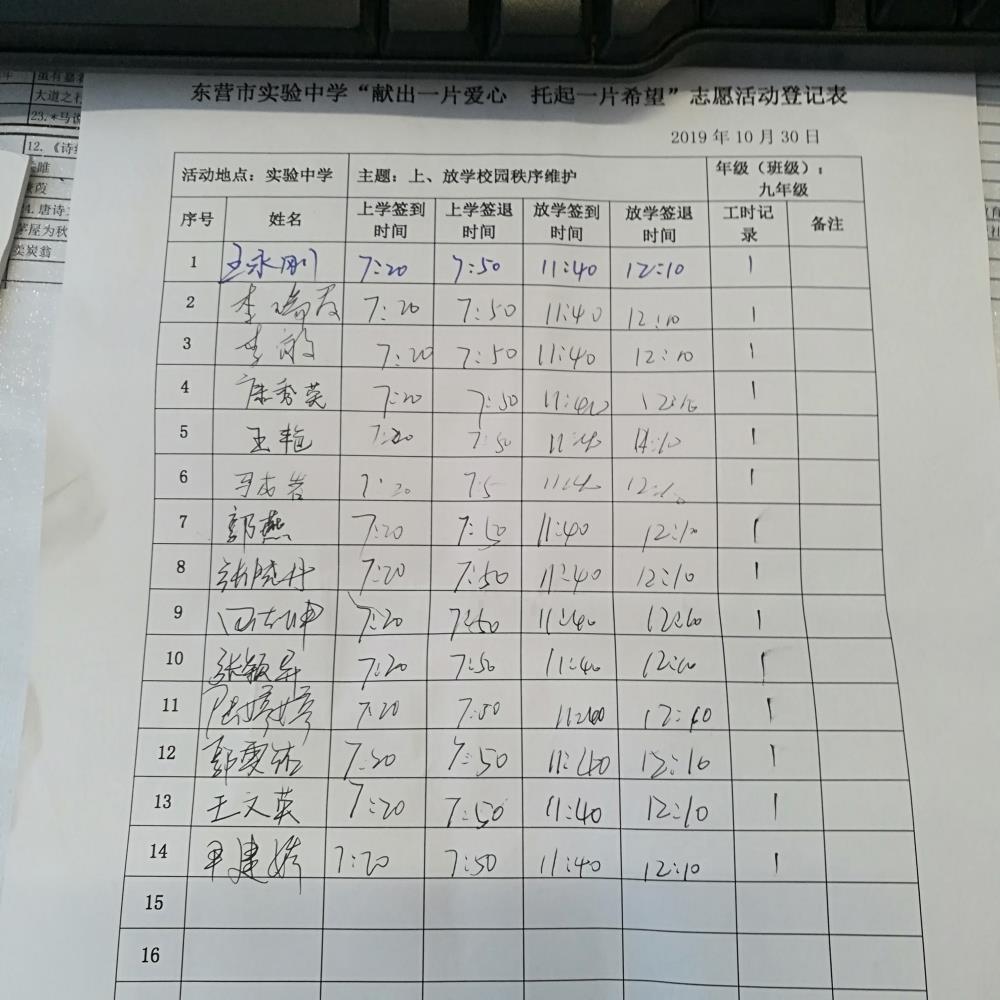 虽有嘉
大道之行
23.*马说
12.《诗经
关雎
蒹葭
唐诗
茅屋为秋
卖炭翁
东营市实验中学“献出一片爱心 托起一片希望”志愿活动登记表
2019年10月30日
活动地点：实验中学 主题：上、放学校园秩序维护 年级（班级）：
九年级
序号 姓名 上学签到时间 上学签退时间 放学签到时间 放学签退时间 工时记录 备注
1 王永刚 7:20 7:50 11:40 12:10 1
2 李瑞霞 7:20 7:50 11:40 12:10 1
3 李敏 7:20 7:50 11:40 12:10 1
4 康秀英 7:20 7:50 11:40 12:10 1
5 王艳 7:20 7:50 11:40 12:10 1
6 7:20 7:5 11:40 12:10 1
7 郭燕 7:20 7:50 11:40 12:10 1
8 张晓丹 7:20 7:50 11:40 12:10 1
9 7:20 7:50 11:40 12:10 1
10 张颖异 7:20 7:50 11:40 12:10 1
11 陈婷婷 7:20 7:50 11:40 12:10 1
12 7:20 7:50 11:40 12:10 1
13 王文英 7:20 7:50 11:40 12:10 1
14 7:20 7:50 11:40 12:10 1
15
16